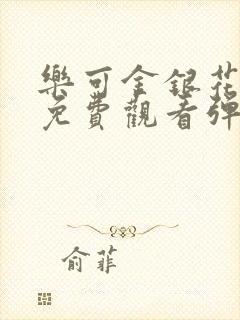 樂可金銀花
免費觀看彈
俞菲